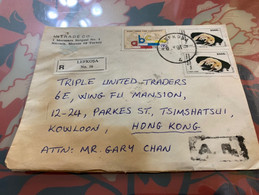 INTRADE CO.
LEFKOŞA
R
No.
TRIPLE UNITED TRADERS
6E, WING FU MANSION,
12-24, PARKES ST, TSIMSHATSUI,
KOWLOON, HONG KONG
ATTN: MR. GARY CHAN